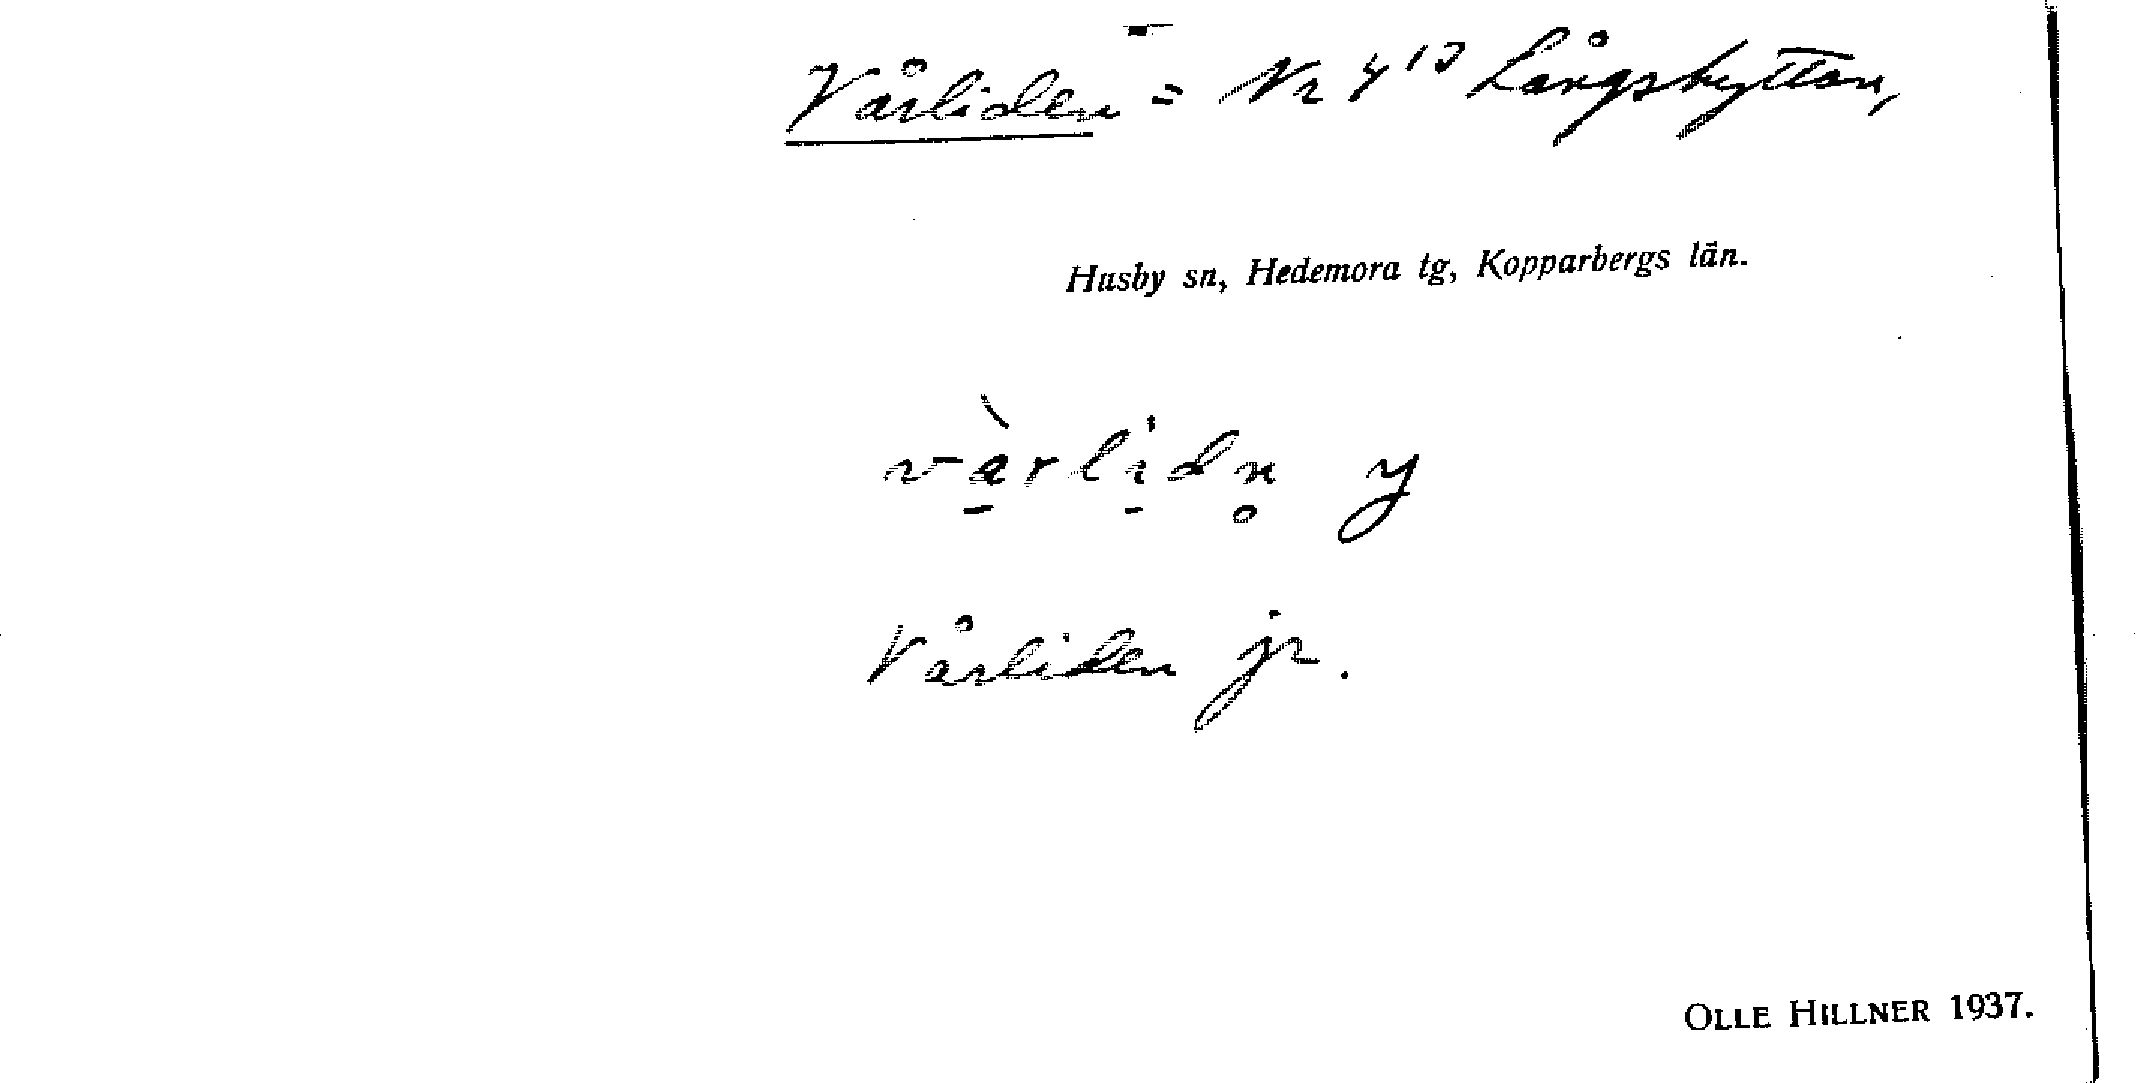 Vårliden = Nr 4¹³ Långshyttan,
Husby sn, Hedemora tg, Kopparbergs län.
vàrlidn̥ y
Vårliden jr.
OLLE HILLNER 1937.